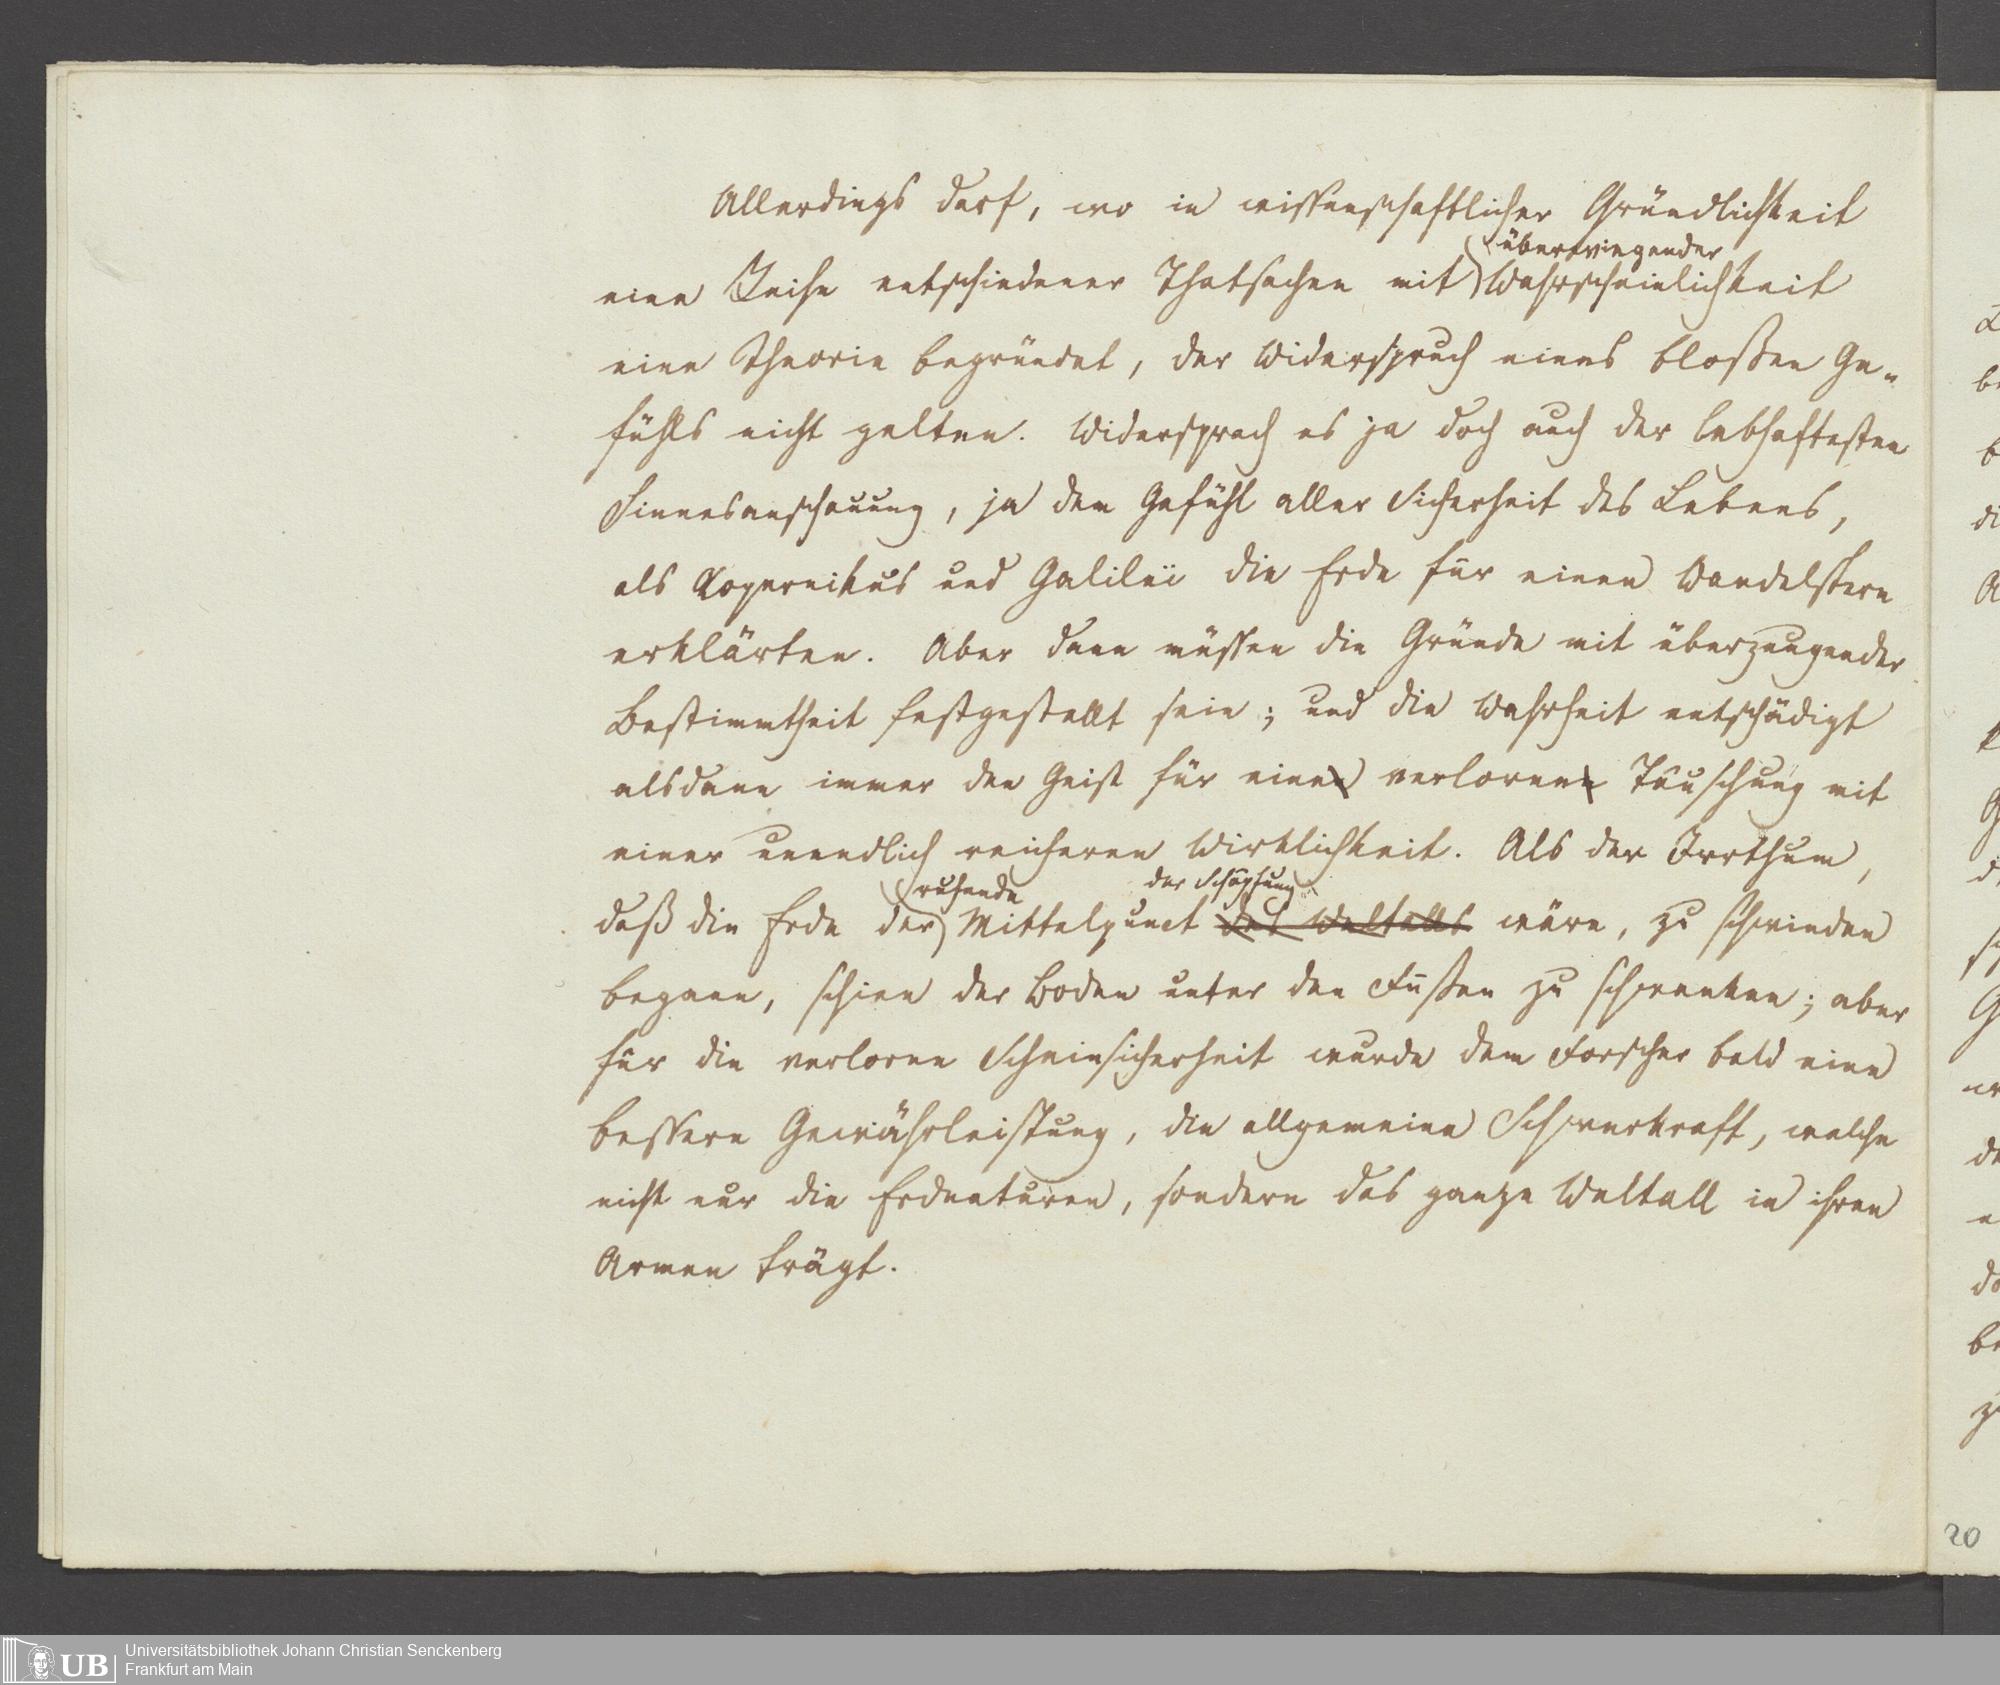 Allerdings darf, wo in wissenschaftlicher Gründlichkeit
überwiegender
eine Reihe entschiedener Thatsachen mit Wahrscheinlichkeit
eine Theorie begründet, der Widerspruch eines bloßen Ge-
fühls nicht gelten. Widersprach es ja doch auch der lebhaftesten
Sinnesanschauung, ja dem Gefühl aller Sicherheit des Lebens,
als Copernikus und Galileï die Erde für einen Wandelstern
erklärten. Aber dann müssen die Gründe mit überzeugender
Bestimmtheit festgestellt sein; und die Wahrheit entschädigt
alsdann immer den Geist für eine verlorne Täuschung mit
einer unendlich reicheren Wirklichkeit. Als der Irrthum,
ruhende der Schöpfung
daß die Erde der Mittelpunct des Weltalls wäre, zu schwinden
begann, schien der Boden unter den Füßen zu schwanken; aber
für die verlorne Scheinsicherheit wurde dem Forscher bald eine
bessere Gewährleistung, die allgemeine Schwerkraft, welche
nicht nur die Erdnaturen, sondern das ganze Weltall in ihren
Armen trägt.
20
UB
Universitätsbibliothek Johann Christian Senckenberg
Frankfurt am Main